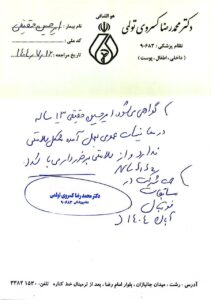 هوالشافی
دکتر محمدرضا کسروی تولمی
نظام پزشکی: ۹۰۶۸۳
(داخلی، اطفال، پوست)
نام بیمار: امیرحسین حقیقی
کد ملی:
تاریخ مراجعه:
گواهی میشود امیرحسین حقیقی ۱۳ ساله
در معاینات عمومی بعمل آمده مشکل پزشکی
ندارد و از سلامتی برخوردار می باشد
جهت شرکت در
مسابقات
فوتبال
آبان ۱۴۰۴
دکتر محمدرضا کسروی تولمی
نظام پزشکی ۹۰۶۸۳
آدرس: رشت، میدان جانبازان، بلوار امام رضا، بعد از ترمینال خط کناره تلفن: ۳۳۸۳۱۵۳۰